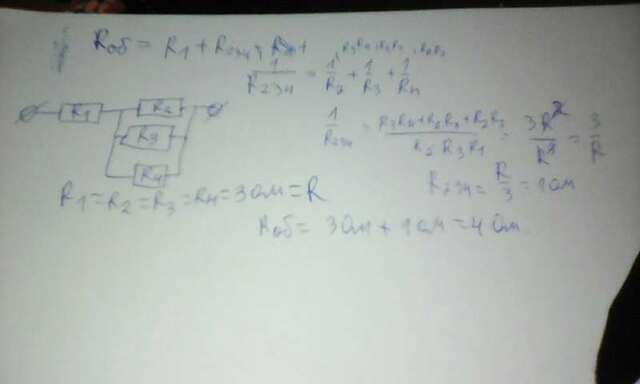 Rоб = R1 + R234
1/R234 = 1/R2 + 1/R3 + 1/R4
R1
R2
R3
R4
1/R234 = R3R4+R2R4+R2R3 / R2 R3 R4 = 3R²/R³ = 3/R
R1=R2=R3=R4=3Ом=R
R234= R/3 =1Ом
Rоб= 3Ом+1Ом=4Ом